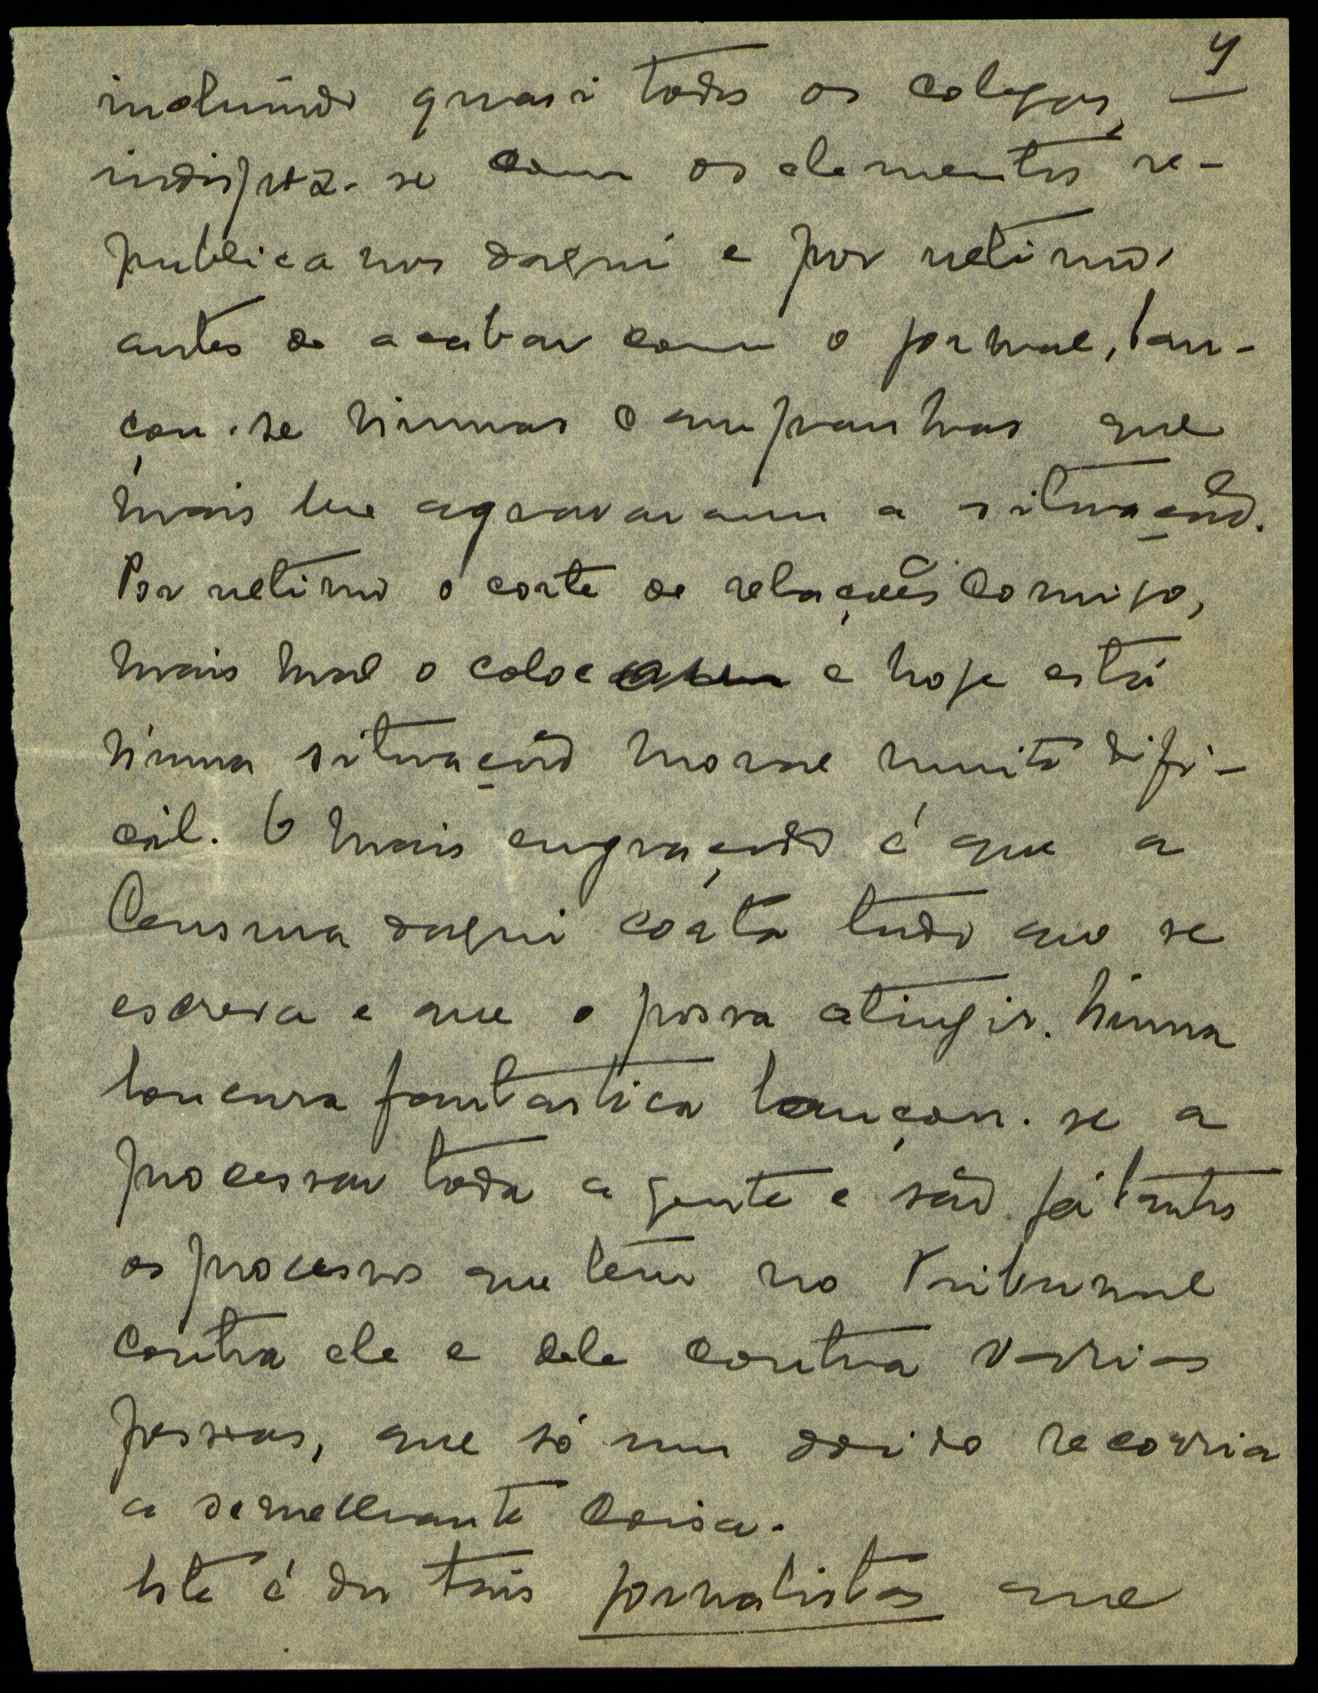 4
incluindo quasi todos os colegas,
indispoz-se com os elementos re-
publicanos daqui e por ultimo,
antes de acabar com o jornal, lan-
çou-se n'umas campanhas que
mais lhe agravaram a situação.
Por ultimo o corte de relações comigo,
mais mal o coloca e hoje está
n'uma situação moral muito difi-
cil. O mais engraçado é que a
Censura daqui córta tudo que se
escreva e que o possa atingir. N'uma
loucura fantastica lançou-se a
processar toda a gente e são já tantos
os processos que tem no Tribunal
contra ele e dele contra varias
pessoas, que só um doido recorria
a semelhante coisa.
Este é dos tais jornalistas que